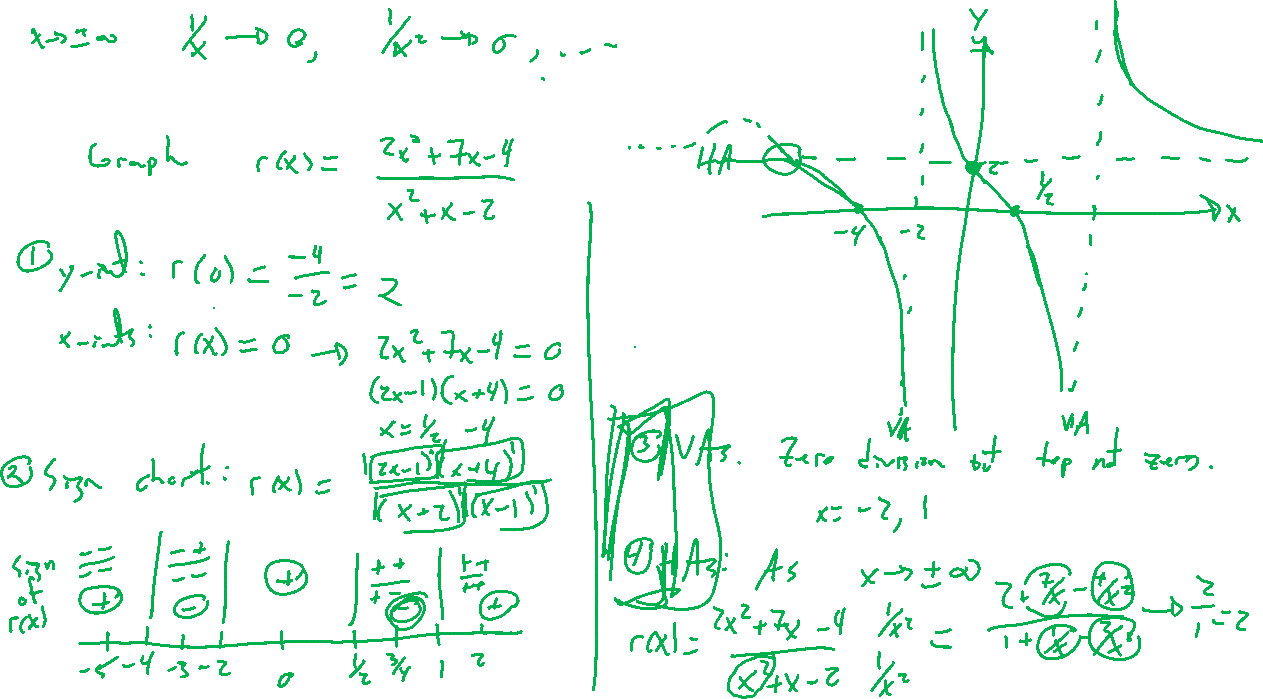 x→±∞ 1/x → 0, 1/x² → 0, ....
Graph r(x) = (2x²+7x-4)/(x²+x-2)
① y-int: r(0) = -4/-2 = 2
x-ints: r(x) = 0 → 2x²+7x-4 = 0
(2x-1)(x+4) = 0
x = 1/2, -4
② Sign chart: r(x) = (2x-1)¹(x+4)¹/(x+2)¹(x-1)¹
sign of r(x)
-- / -- + | -+ / -- - | + | ++ / +- - | ++ / ++ +
-5 -4 -3 -2 0 1/2 3/4 1 2
Y
HA
2
1/2
-4 -2
X
VA VA
③ VAs: Zero division but top not zero.
x = -2, 1
④ HAs: As x → ±∞
r(x) = (2x²+7x-4)/(x²+x-2) (1/x²)/(1/x²) = (2+7/x-4/x²)/(1+1/x-2/x²) → 2/1 = 2